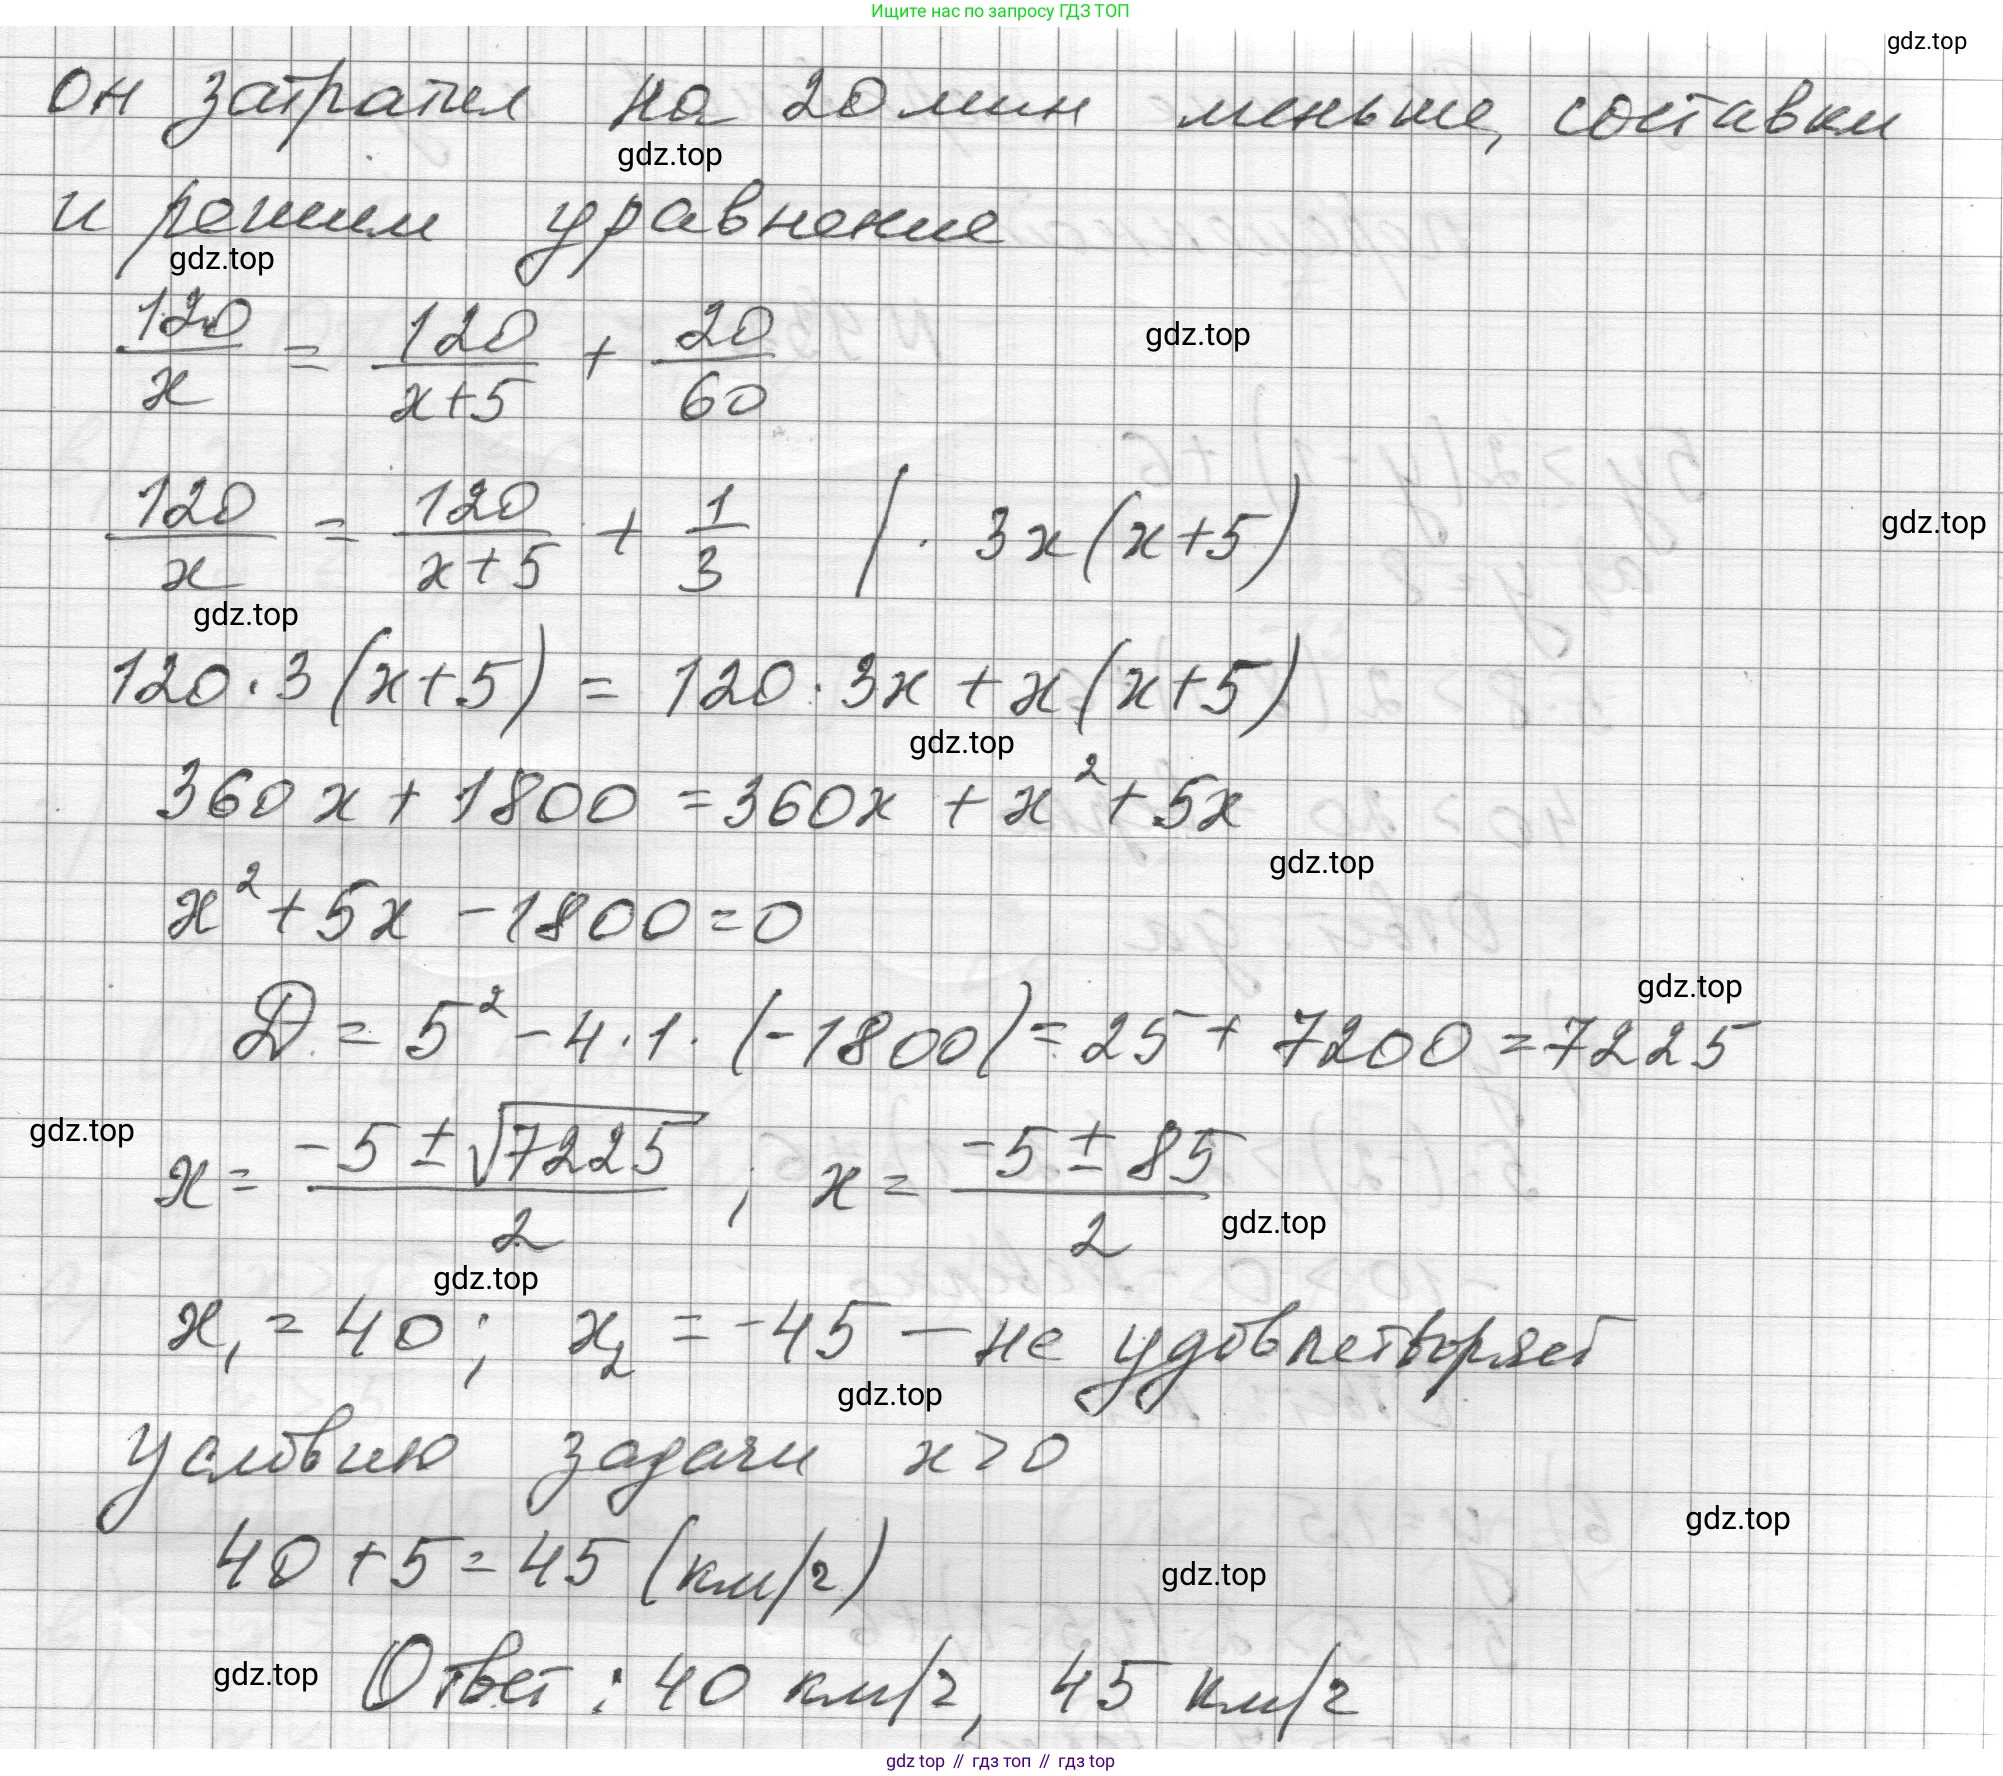 Ищите нас по запросу ГДЗ ТОП
gdz.top
он затратил на 20 мин меньше, составим
gdz.top
и решим уравнение
gdz.top
120/x = 120/(x+5) + 20/60
gdz.top
120/x = 120/(x+5) + 1/3 | · 3x(x+5)
gdz.top
gdz.top
120·3(x+5) = 120·3x + x(x+5)
gdz.top
360x + 1800 = 360x + x² + 5x
gdz.top
x² + 5x - 1800 = 0
gdz.top
D = 5² - 4·1·(-1800) = 25 + 7200 = 7225
gdz.top
x = (-5 ± √7225)/2 ; x = (-5 ± 85)/2
gdz.top
gdz.top
x₁ = 40; x₂ = -45 — не удовлетворяет
gdz.top
условию задачи x > 0
gdz.top
40 + 5 = 45 (км/ч)
gdz.top
gdz.top
Ответ: 40 км/ч, 45 км/ч
gdz top // гдз топ // гдз top